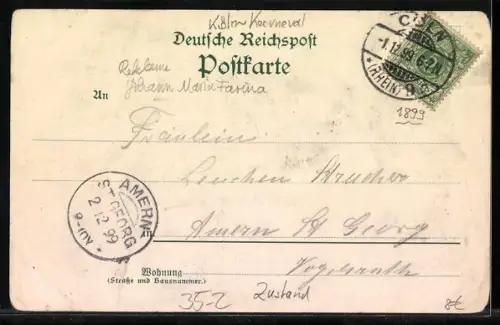 Köln Karneval
Deutsche Reichspost
Postkarte
Reklame
Johann Maria Farina
An
CÖLN
1.12.99.6-7N
* (RHEIN) 9
1899
Fräulein
Lenchen
Amern St Georg
Vogelsrath
AMERN
ST. GEORG
2 12 99
Wohnung
(Straße und Hausnummer.)
35-2
Zustand
8€